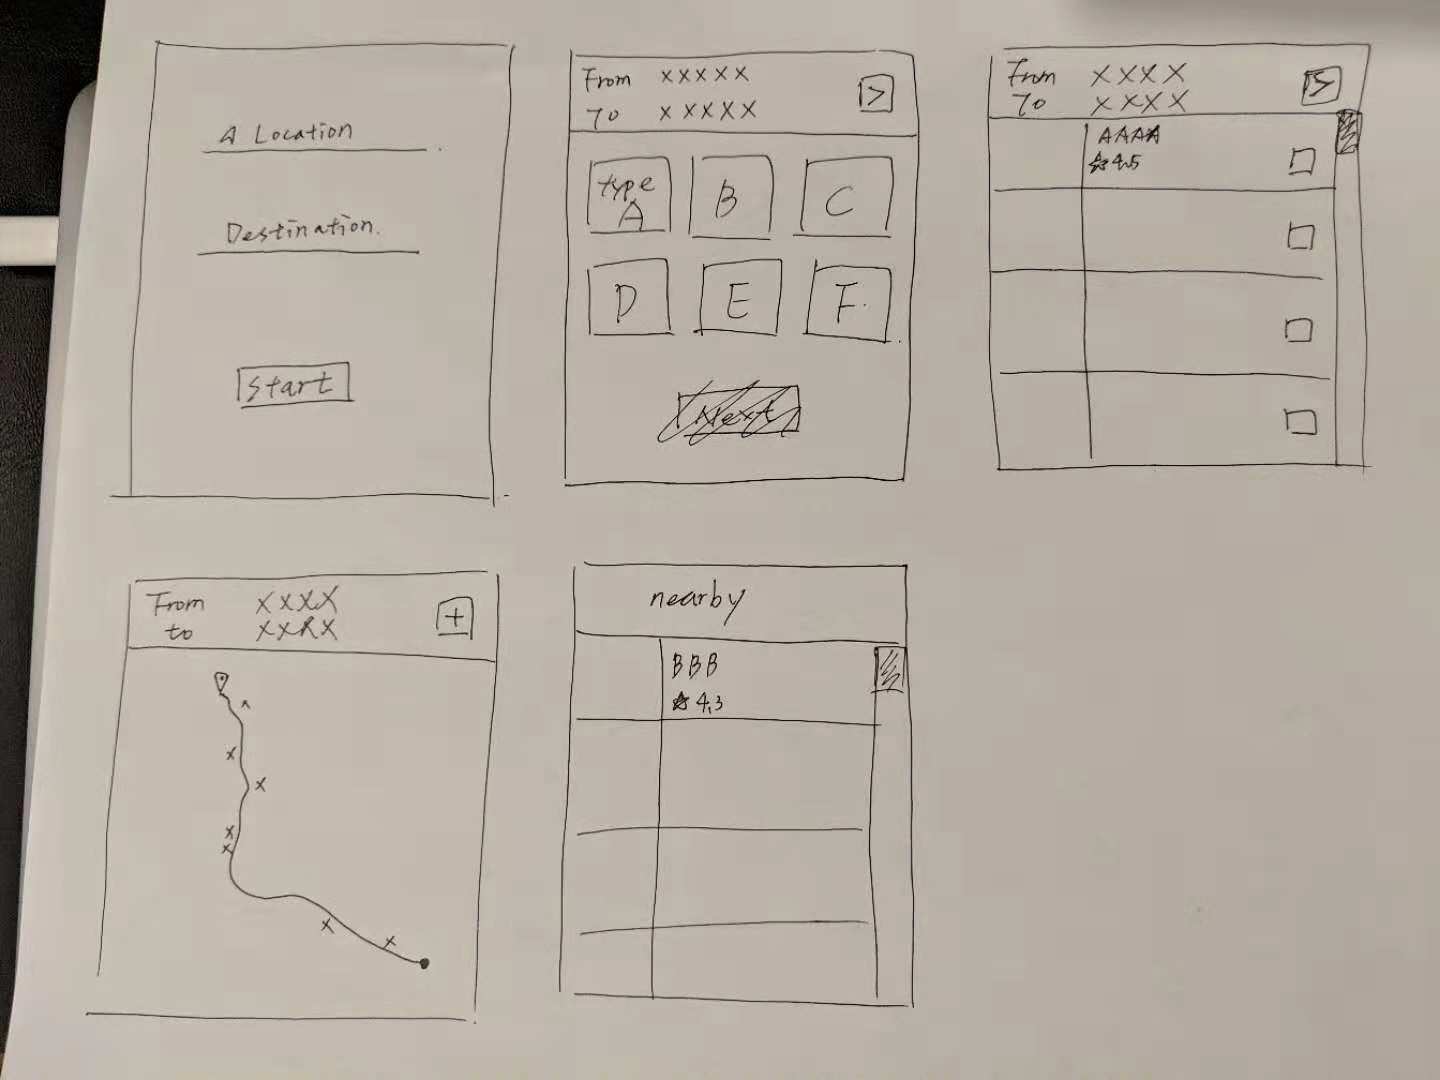 A Location
Destination.
Start
From XXXXX
To XXXXX
>
type
A
B
C
D
E
F
Next
From XXXX
To XXXX
>
AAAA
☆4.5
From XXXX
to XXXX
+
X
X
X
X
X
X
nearby
BBB
☆4.3